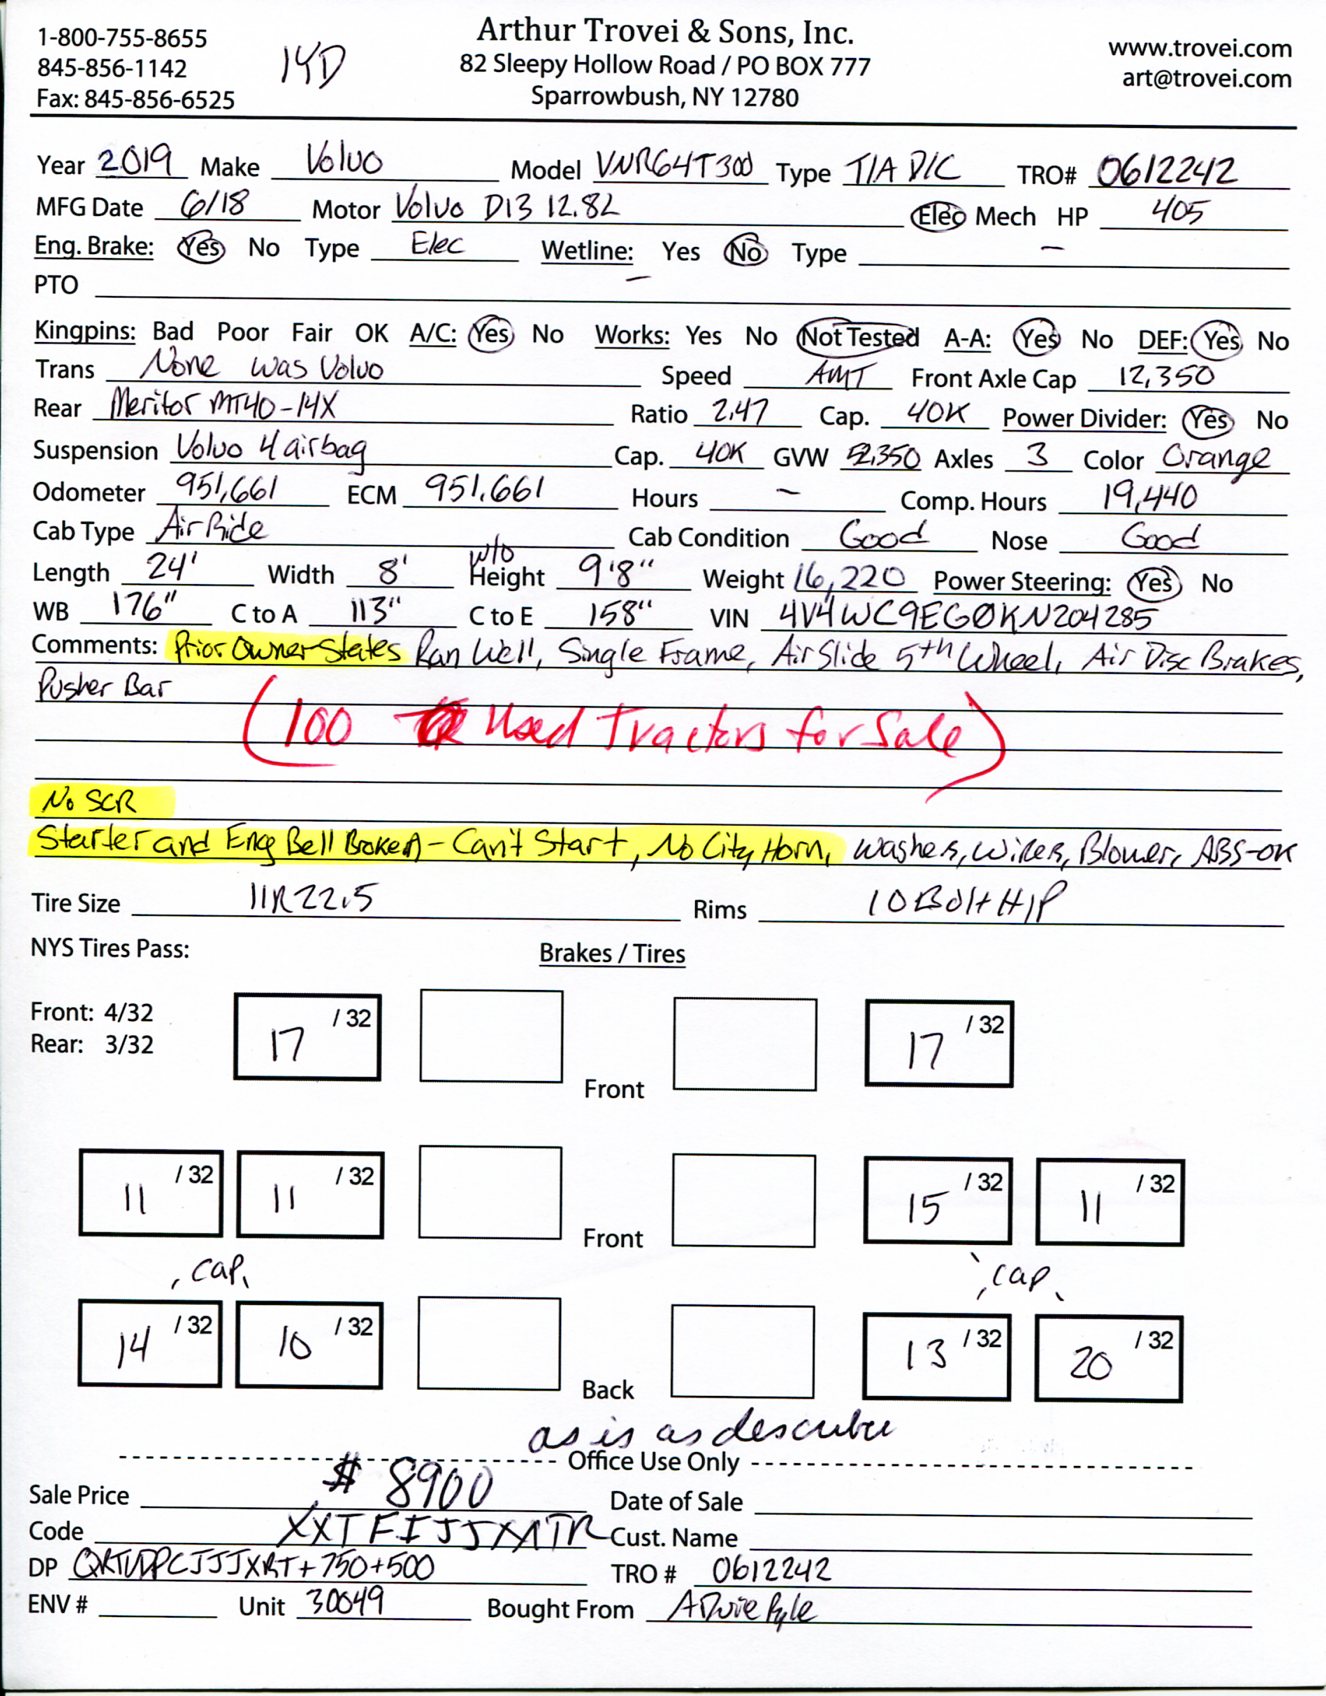 1-800-755-8655
845-856-1142
Fax: 845-856-6525
14D
Arthur Trovei & Sons, Inc.
82 Sleepy Hollow Road / PO BOX 777
Sparrowbush, NY 12780
www.trovei.com
art@trovei.com
Year 2019 Make Volvo Model VNR64T300 Type T/A D/C TRO# 0612242
MFG Date 6/18 Motor Volvo D13 12.8L Elec Mech HP 405
Eng. Brake: Yes No Type Elec Wetline: Yes No Type –
PTO –
Kingpins: Bad Poor Fair OK A/C: Yes No Works: Yes No Not Tested A-A: Yes No DEF: Yes No
Trans None was Volvo Speed AMT Front Axle Cap 12,350
Rear Meritor MT40-14X Ratio 2.47 Cap. 40K Power Divider: Yes No
Suspension Volvo 4 airbag Cap. 40K GVW 52,350 Axles 3 Color Orange
Odometer 951,661 ECM 951,661 Hours – Comp. Hours 19,440
Cab Type Air Ride Cab Condition Good Nose Good
Length 24' Width 8' w/o Height 9'8" Weight 16,220 Power Steering: Yes No
WB 176" C to A 113" C to E 158" VIN 4V4WC9EG0KN204285
Comments: Prior Owner States Ran Well, Single Frame, Air Slide 5th Wheel, Air Disc Brakes,
Pusher Bar
(100 Used Tractors for Sale)
No SCR
Starter and Eng Bell Broken - Can't Start, No City Horn, Washers, Wipers, Blower, ABS-OK
Tire Size 11R22.5 Rims 10 Bolt H/P
NYS Tires Pass: Brakes / Tires
Front: 4/32
Rear: 3/32
17 /32 17 /32
Front
11 /32 11 /32 15 /32 11 /32
Front
, cap, , cap,
14 /32 10 /32 13 /32 20 /32
Back
as is as describe
Office Use Only
Sale Price $8900 Date of Sale
Code Cust. Name
DP TRO # 0612242
ENV # Unit 30049 Bought From